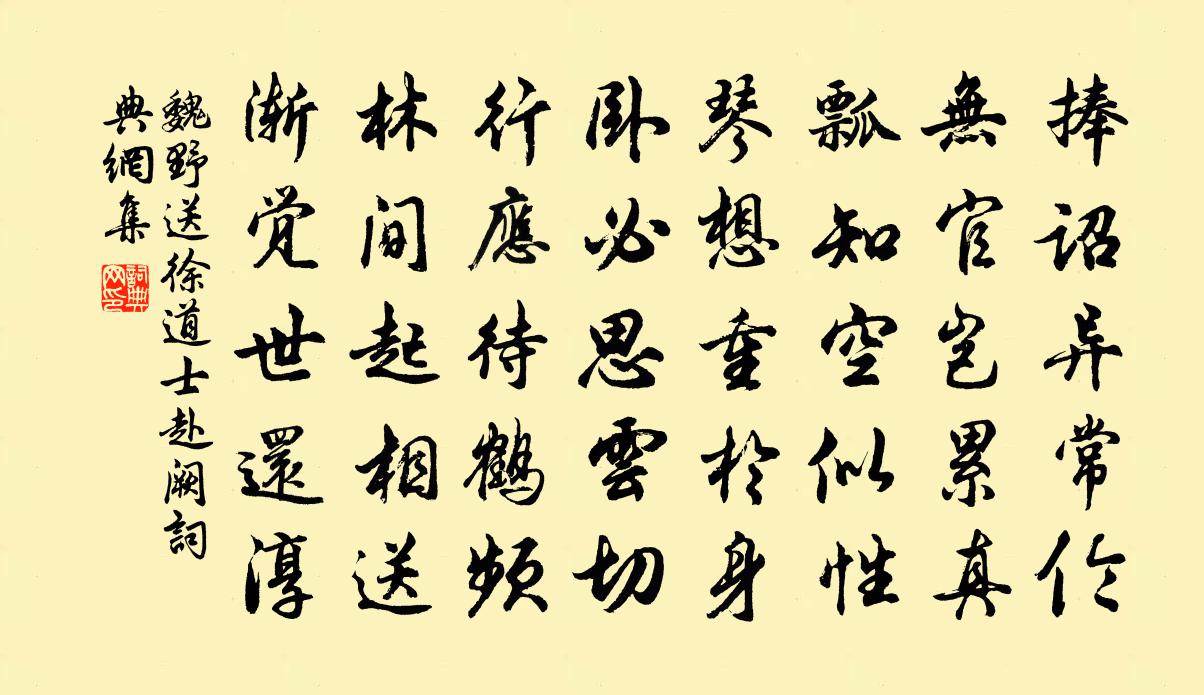 捧詔异常伦
無官岂累真
瓢知空似性
琴想重於身
卧必思雲切
行應待鹤频
林间起相送
渐觉世還淳
魏野送徐道士赴阙詞
典網集
詞典网印